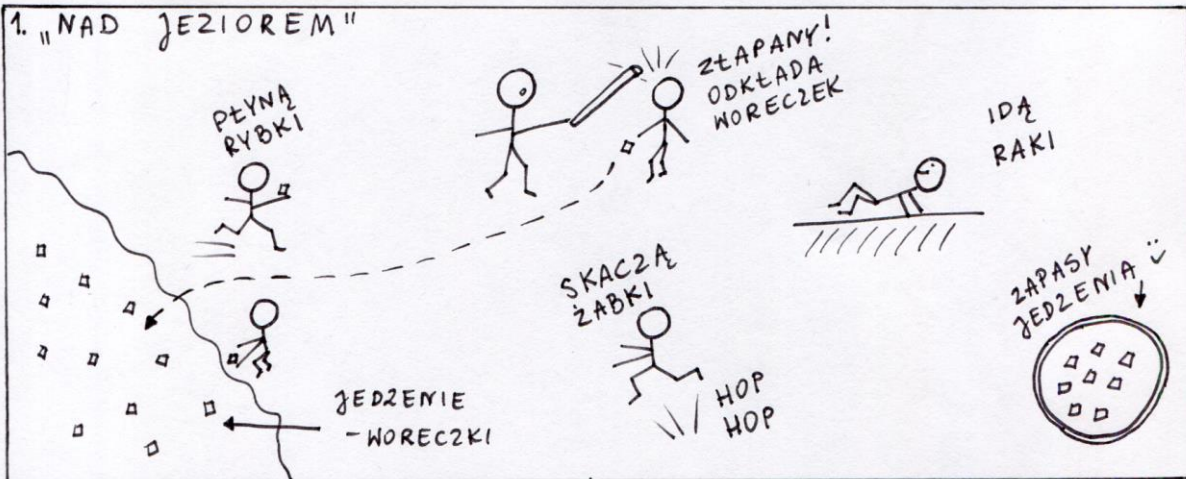 1. „NAD JEZIOREM"
PŁYNĄ
RYBKI
ZŁAPANY!
ODKŁADA
WORECZEK
IDĄ
RAKI
SKACZĄ
ŻABKI
HOP
HOP
ZAPASY
JEDZENIA
JEDZENIE
-WORECZKI